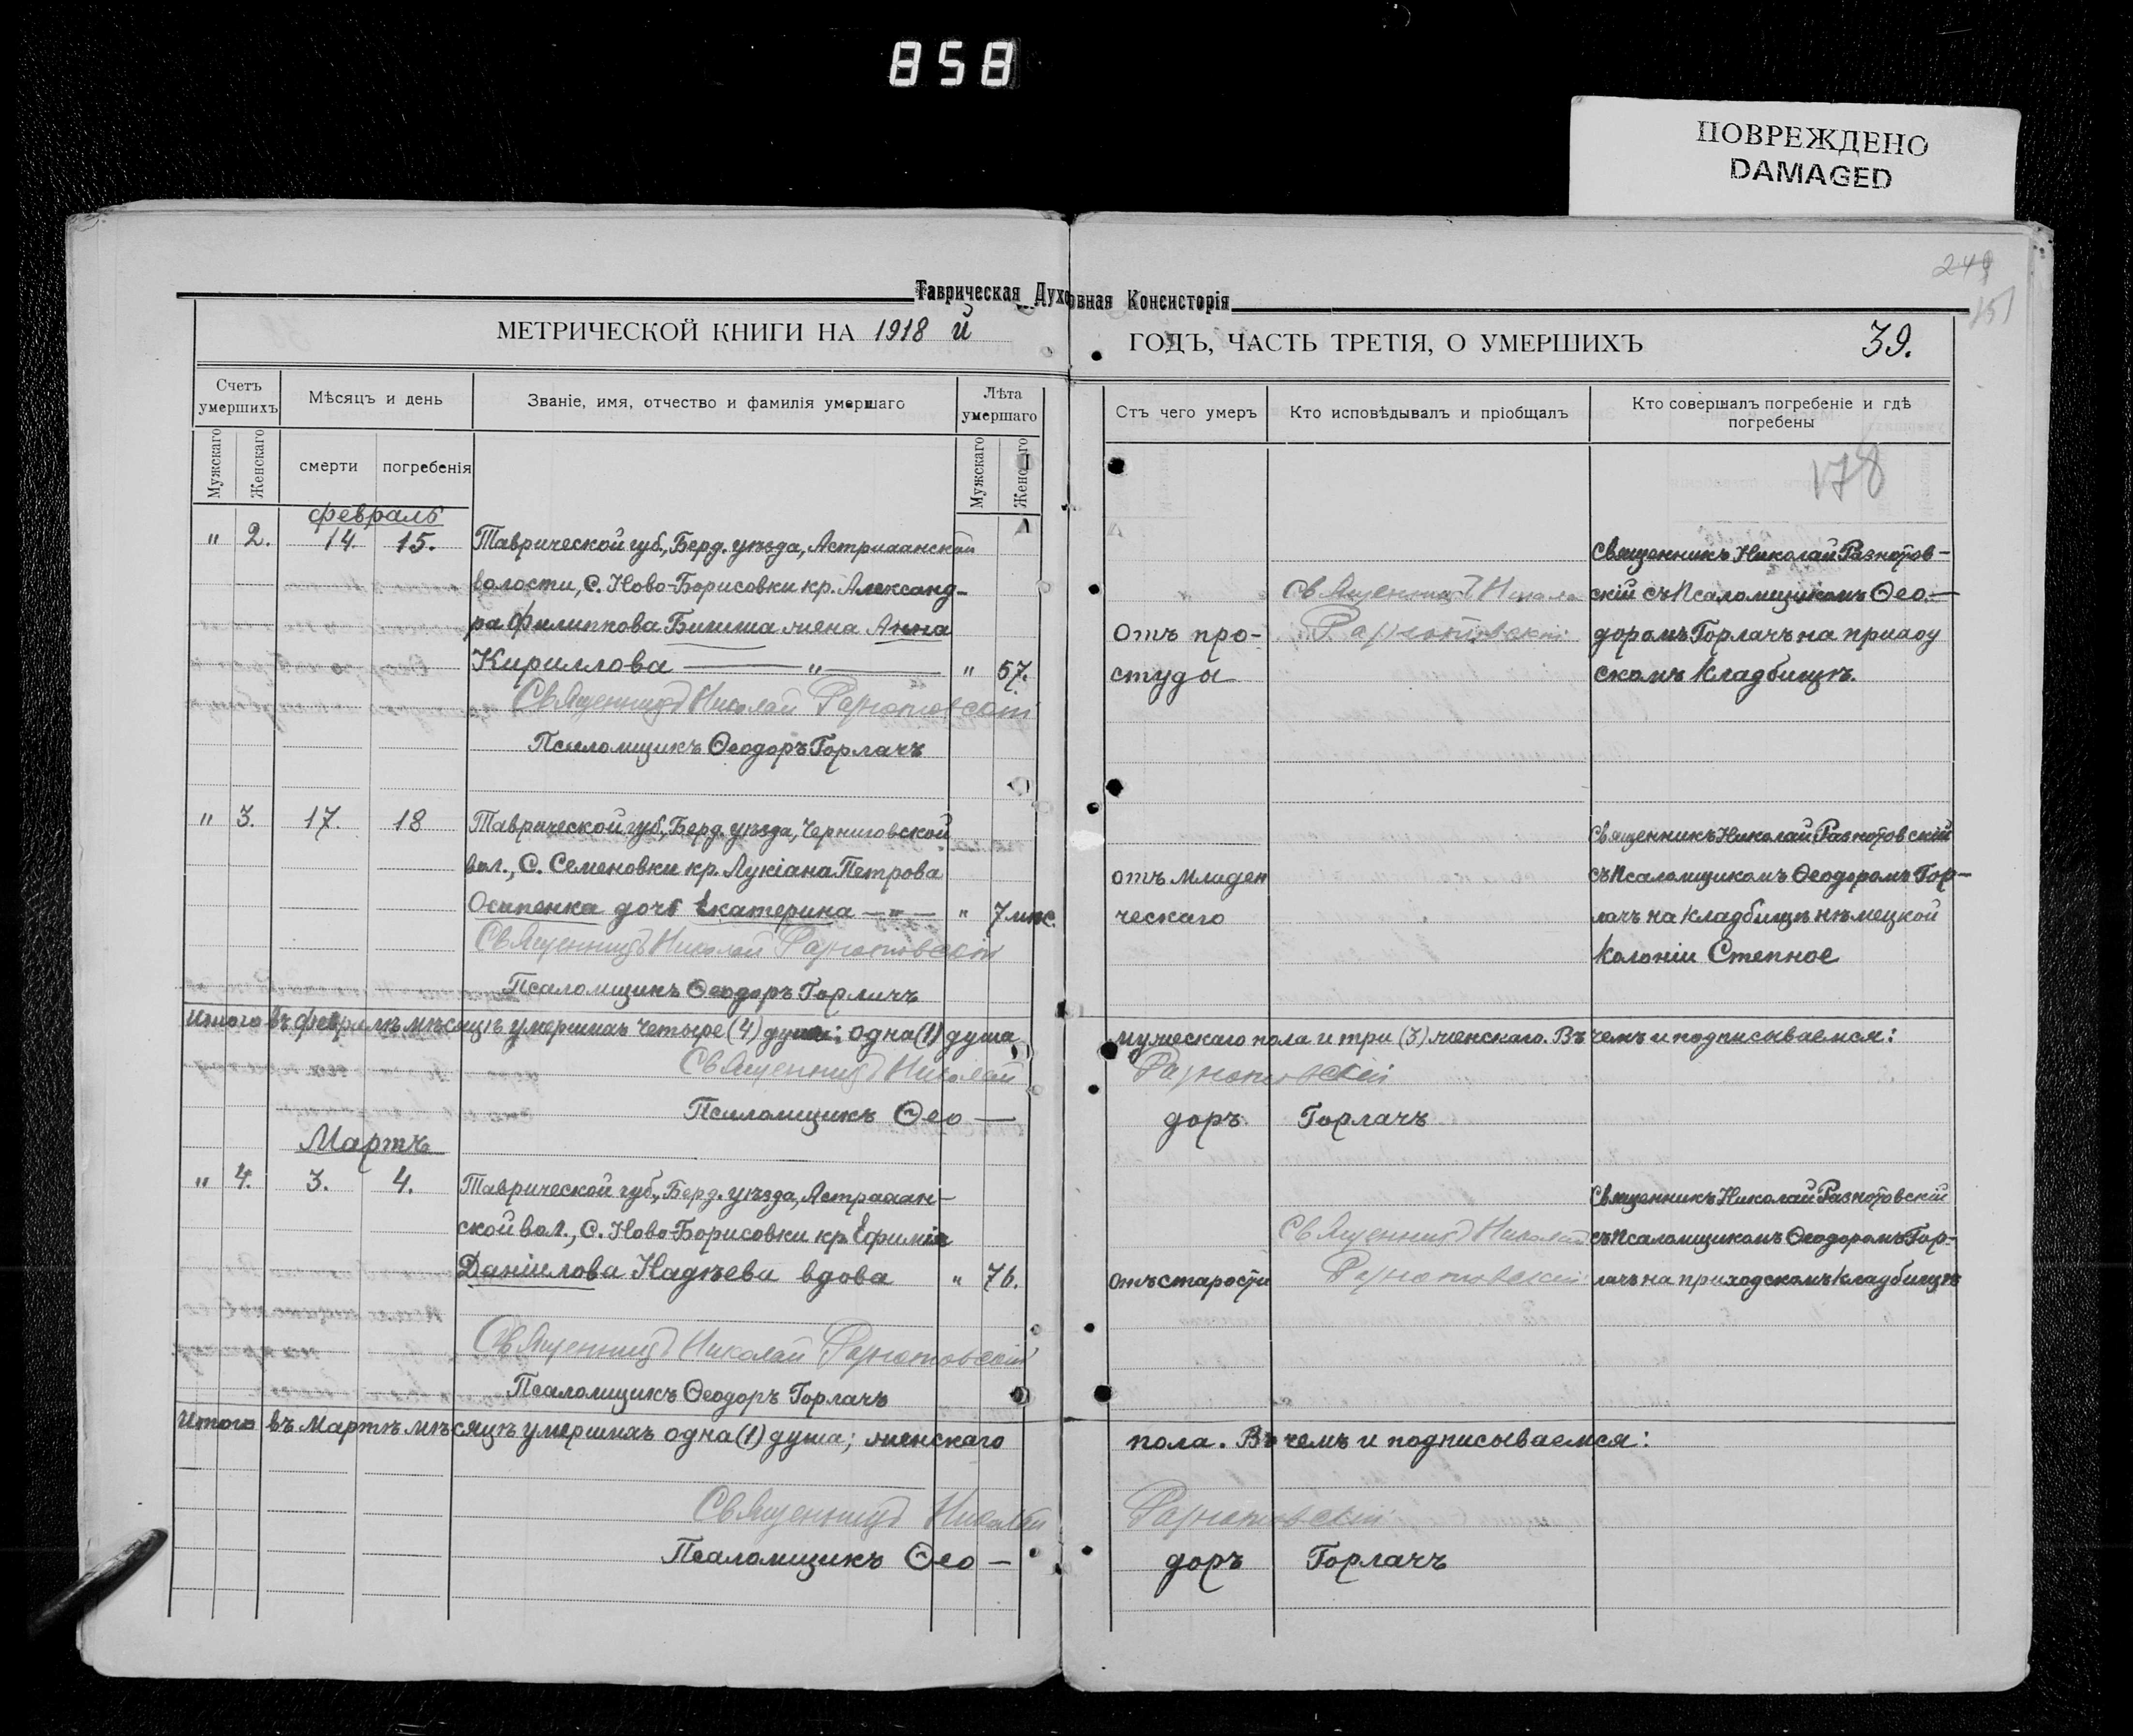 858
ПОВРЕЖДЕНО
DAMAGED
249
151
Таврическая Духовная Консисторія
МЕТРИЧЕСКОЙ КНИГИ НА 1918 й ГОДЪ, ЧАСТЬ ТРЕТІЯ, О УМЕРШИХЪ 39.
Счетъ умершихъ
Мужскаго
Женскаго
Мѣсяцъ и день
смерти
погребенія
Званіе, имя, отчество и фамилія умершаго
Лѣта умершаго
Мужскаго
Женскаго
Отъ чего умеръ
Кто исповѣдывалъ и пріобщалъ
Кто совершалъ погребеніе и гдѣ
погребены
178
февраль
" 2. 14. 15. Таврической губ., Берд. уѣзда, Астраханской
волости, С. Ново-Борисовки кр. Александ-
ра Филиппова жена Анна
Кириллова " " 57.
Отъ про-
студы
Священникъ Никола
Разнотовскій
Священникъ Николай Разнотов-
скій съ Псаломщикомъ Ѳео-
доромъ Горлачъ на приход
скомъ кладбищѣ.
Священникъ Николай Разнотовскій
Псаломщикъ Ѳеодоръ Горлачъ
" 3. 17. 18 Таврической губ., Берд. уѣзда, Черниговской
вол., С. Семеновки кр. Лукіана Петрова
Осипенка дочь Екатерина " " 7 мѣс.
отъ младен
ческаго
Священникъ Николай Разнотовскій
съ Псаломщикомъ Ѳеодоромъ Гор-
лачъ на кладбищѣ нѣмецкой
колоніи Степное
Священникъ Николай Разнотовскій
Псаломщикъ Ѳеодоръ Горлачъ
Итого въ февралѣ мѣсяцѣ умершихъ четыре (4) души: одна (1) душа мужескаго пола и три (3) женскаго. Въ чемъ и подписываемся:
Священникъ Николай Разнотовскій
Псаломщикъ Ѳео-доръ Горлачъ
Мартъ
" 4. 3. 4. Таврической губ., Берд. уѣзда, Астрахан-
ской вол., С. Ново-Борисовки кр. Ефимія
Даніилова Надѣева вдова " 76.
Отъ старости
Священникъ Николай
Разнотовскій
Священникъ Николай Разнотовскій
съ Псаломщикомъ Ѳеодоромъ Гор-
лачъ на приходскомъ кладбищѣ
Священникъ Николай Разнотовскій
Псаломщикъ Ѳеодоръ Горлачъ
Итого въ Мартѣ мѣсяцѣ умершихъ одна (1) душа; женскаго пола. Въ чемъ и подписываемся:
Священникъ Николай Разнотовскій
Псаломщикъ Ѳео-доръ Горлачъ